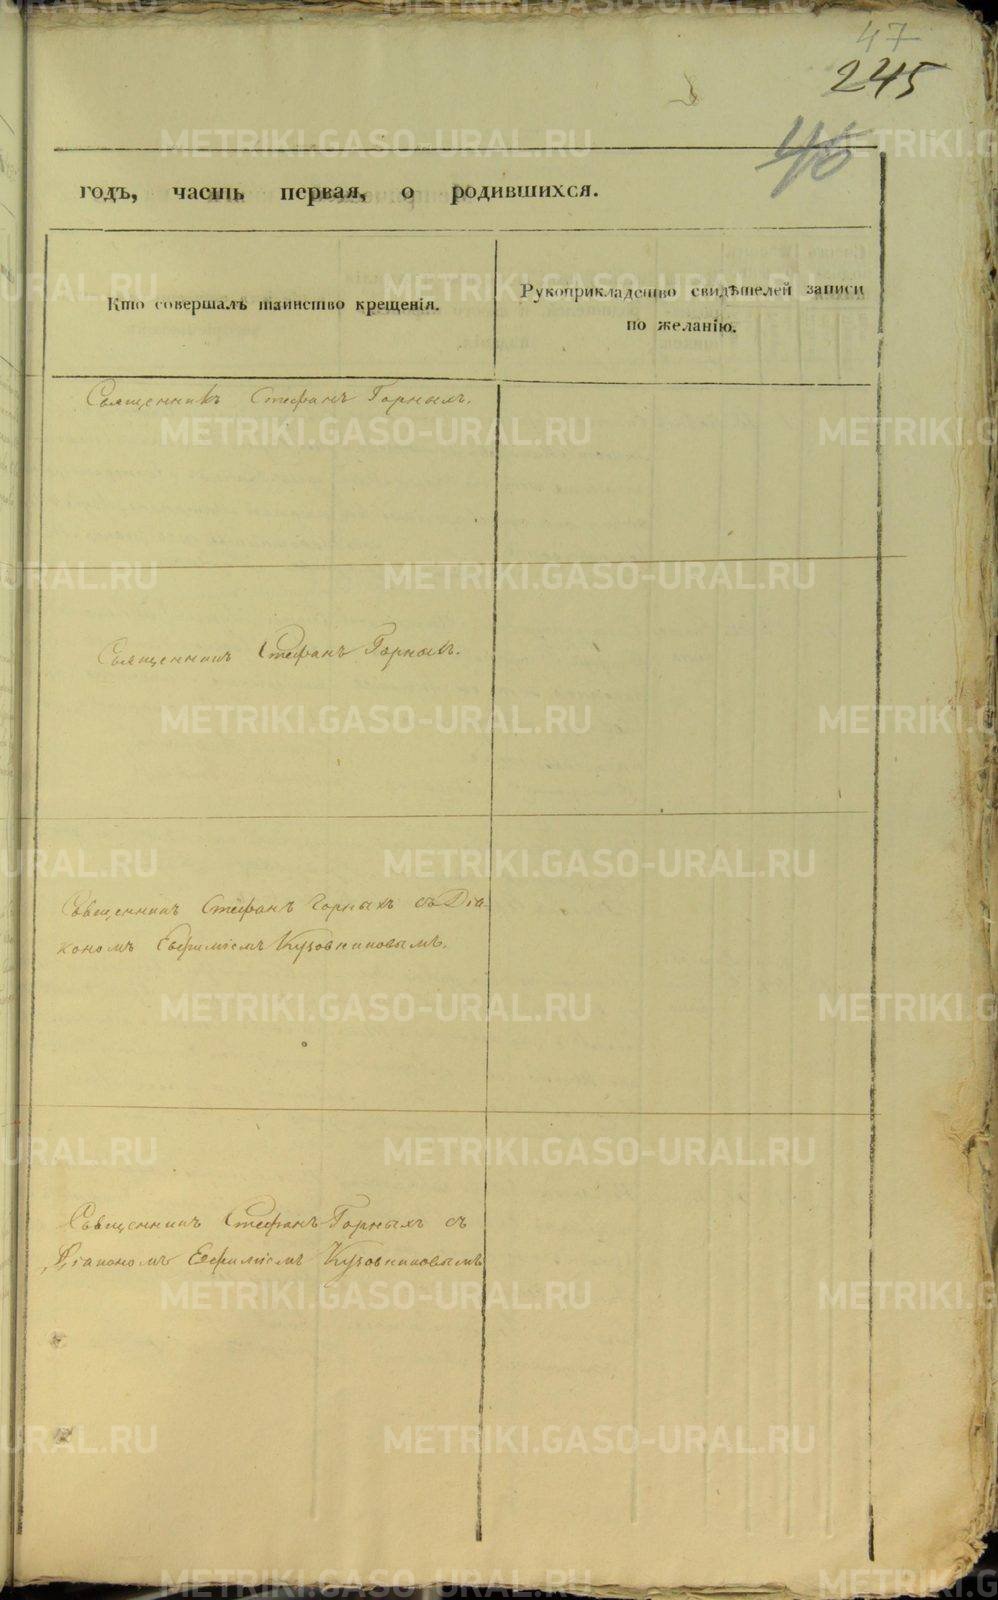 47
245
46
годъ, часть первая, о родившихся.
Кто совершалъ таинство крещенія.
Рукоприкладство свидѣтелей записи
по желанію.
Священникъ Стефанъ Горныхъ.
Священникъ Стефанъ Горныхъ.
Священникъ Стефанъ Горныхъ съ Діа-
кономъ Евфиміемъ Кузовниковымъ.
Священникъ Стефанъ Горныхъ съ
Діакономъ Евфиміемъ Кузовниковымъ
METRIKI.GASO-URAL.RU